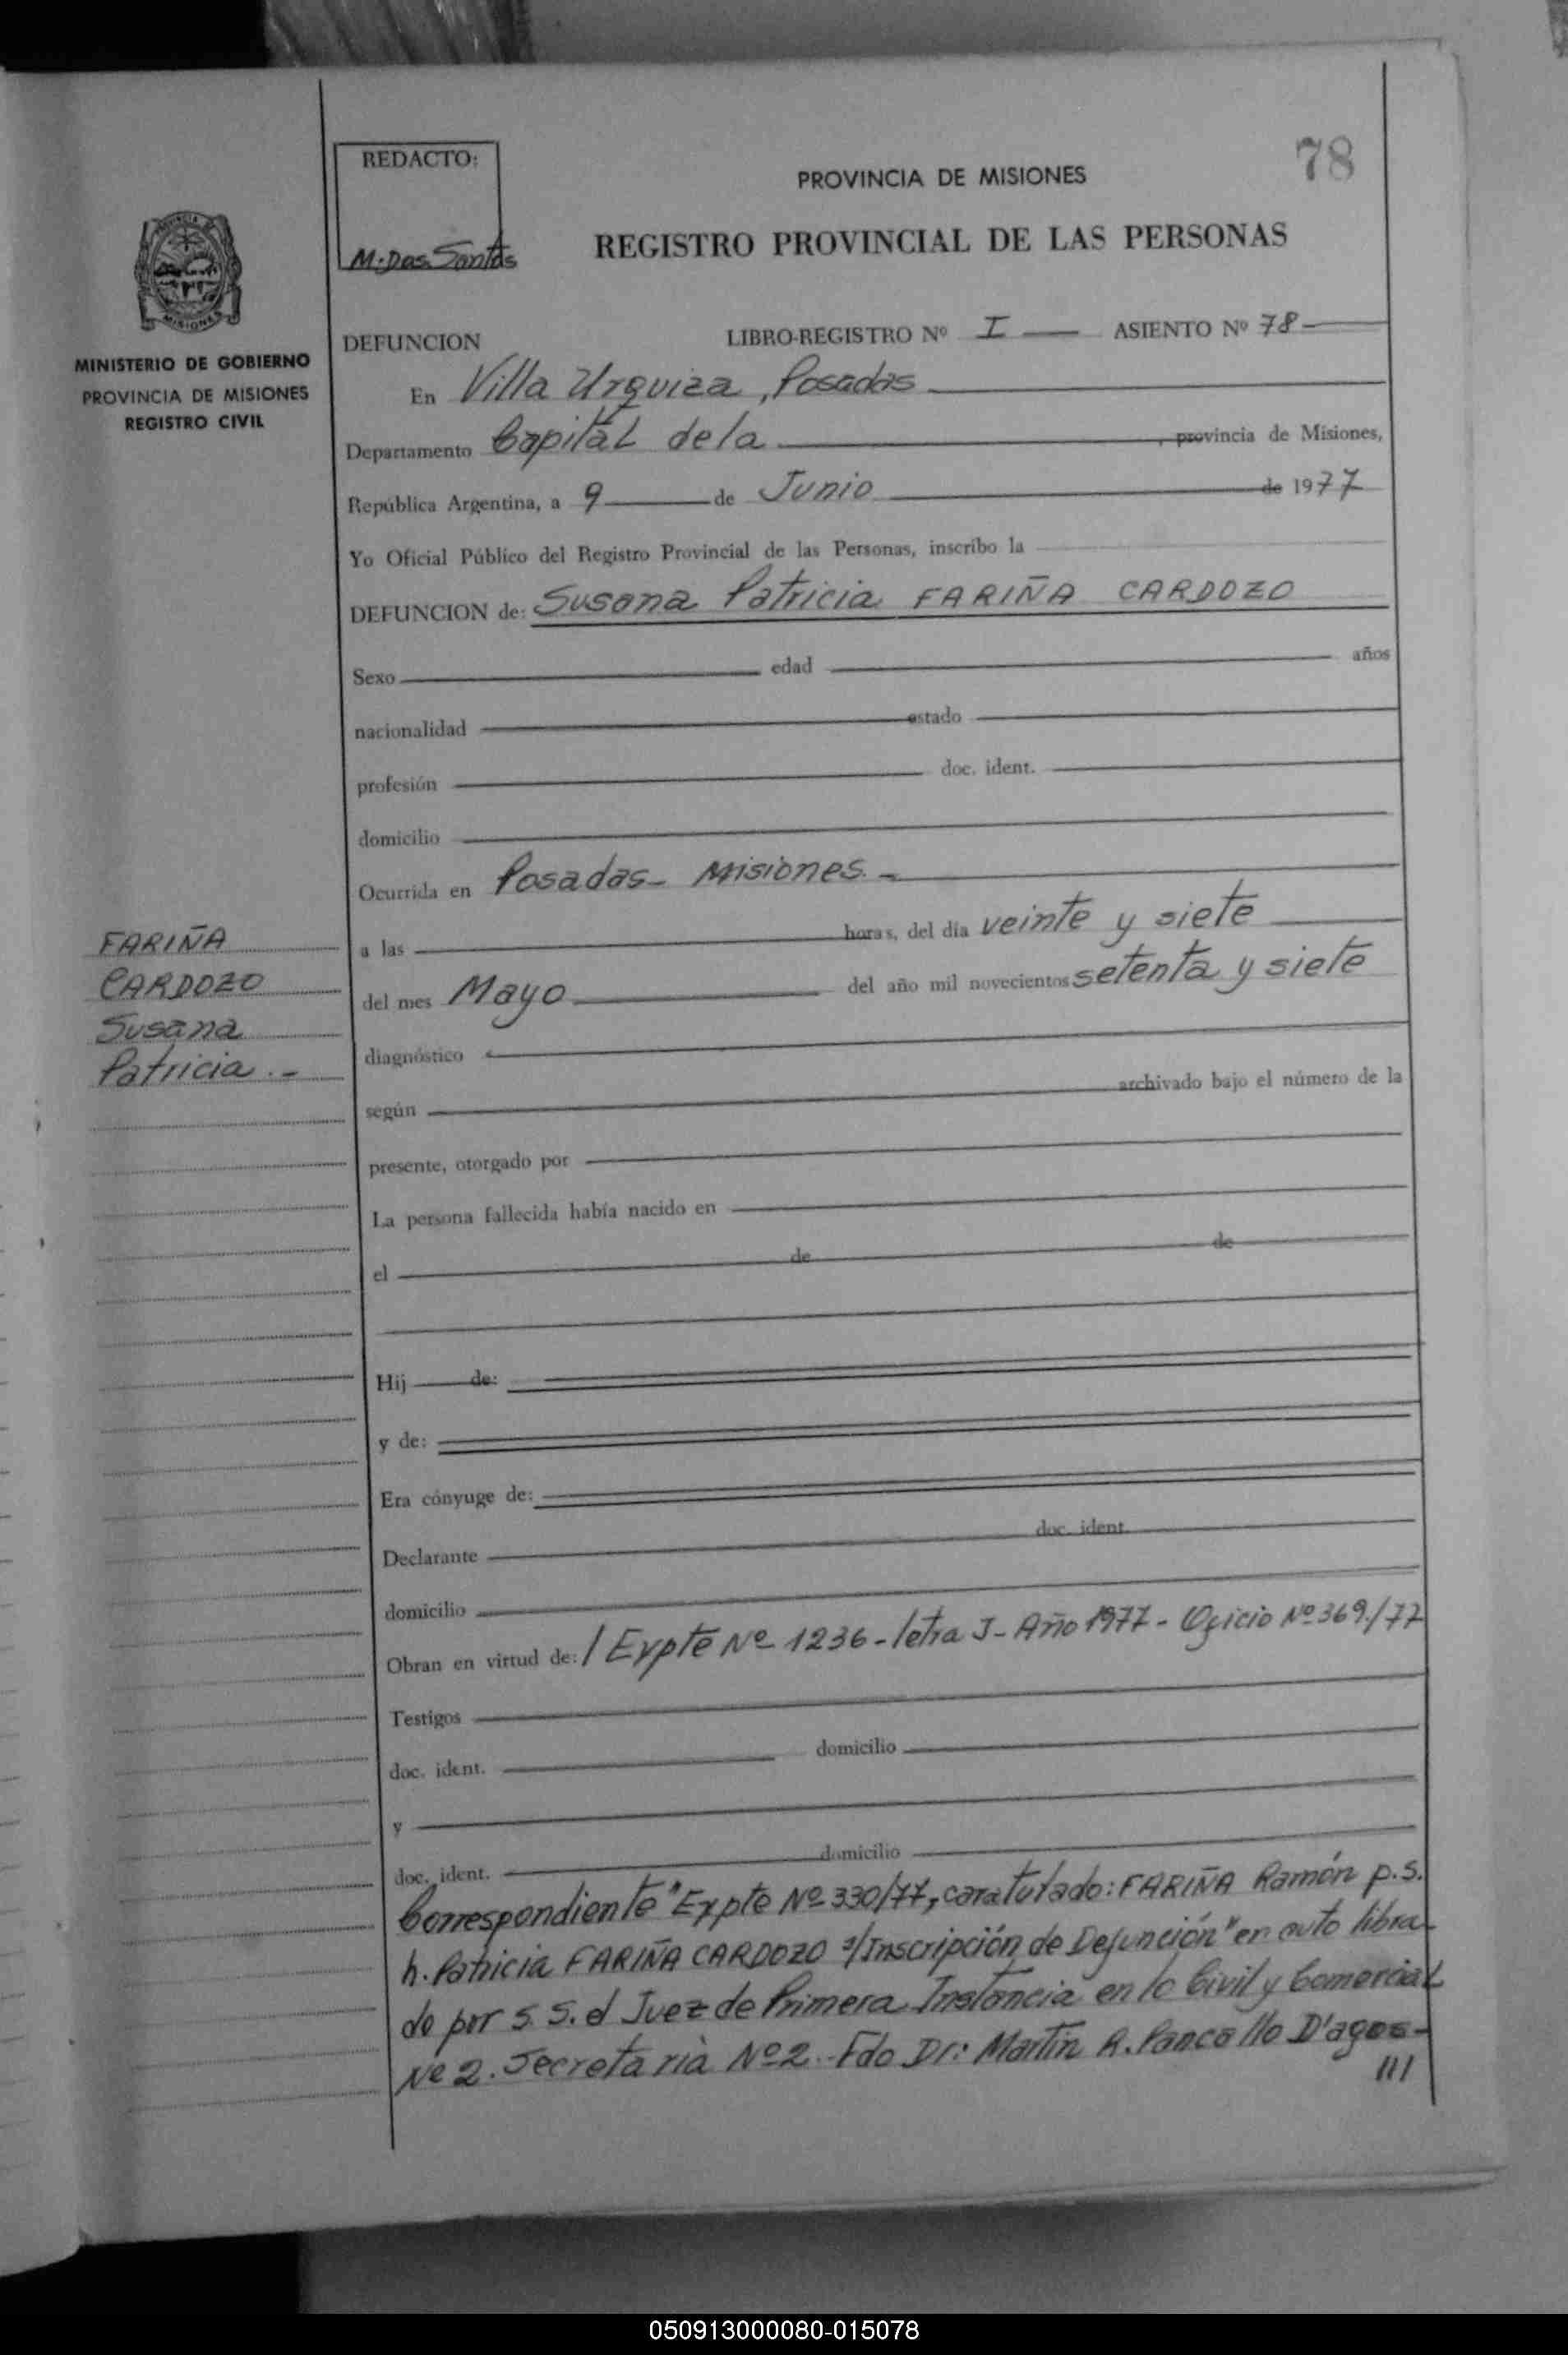 78
REDACTO:
M. Dos Santos
PROVINCIA DE MISIONES
REGISTRO PROVINCIAL DE LAS PERSONAS
MISIONES
MINISTERIO DE GOBIERNO
PROVINCIA DE MISIONES
REGISTRO CIVIL
DEFUNCION LIBRO-REGISTRO Nº I ASIENTO Nº 78
En Villa Urquiza, Posadas
Departamento Capital de la, provincia de Misiones,
República Argentina, a 9 de Junio de 1977
Yo Oficial Público del Registro Provincial de las Personas, inscribo la
DEFUNCION de: Susana Patricia FARIÑA CARDOZO
Sexo edad años
nacionalidad estado
profesión doc. ident.
domicilio
Ocurrida en Posadas- Misiones.-
a las horas, del día veinte y siete
del mes Mayo del año mil novecientos setenta y siete
diagnóstico
según archivado bajo el número de la
presente, otorgado por
La persona fallecida había nacido en
el de de
Hij de:
y de:
Era cónyuge de:
Declarante doc. ident.
domicilio
Obran en virtud de: / Expte Nº 1236-letra J- Año 1977- Oficio Nº 369./77
Testigos
doc. ident. domicilio
y
doc. ident. domicilio
Correspondiente "Expte Nº 330/77, caratulado: FARIÑA Ramón p.s.
h. Patricia FARIÑA CARDOZO s/Inscripción de Defunción" en auto libra-
do por S.S. el Juez de Primera Instancia en lo Civil y Comercial
Nº 2. Secretaria Nº 2.- Fdo Dr: Martin R. Pancallo D'agos-
///
FARIÑA
CARDOZO
Susana
Patricia.-
050913000080-015078